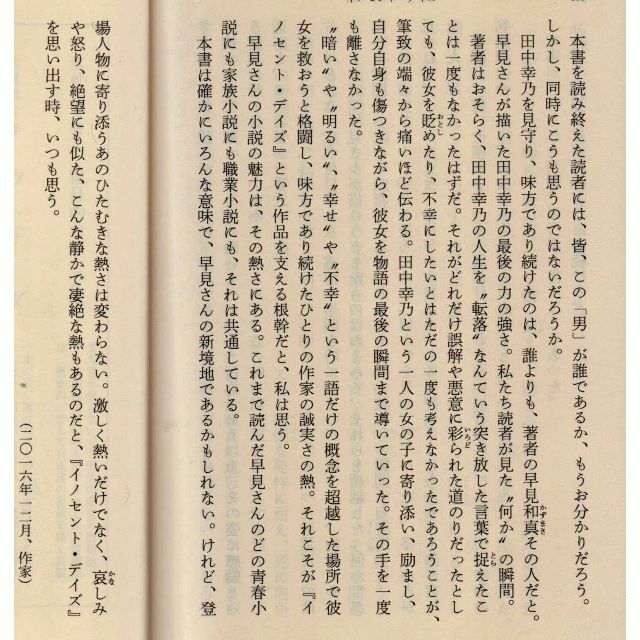 本書を読み終えた読者には、皆、この「男」が誰であるか、もうお分かりだろう。
しかし、同時にこうも思うのではないだろうか。
田中幸乃を見守り、味方であり続けたのは、誰よりも、著者の早見和真その人だと。
早見さんが描いた田中幸乃の最後の力の強さ。私たち読者が見た〝何か〟の瞬間。
著者はおそらく、田中幸乃の人生を〝転落〟なんていう突き放した言葉で捉えたこ
とは一度もなかったはずだ。それがどれだけ誤解や悪意に彩られた道のりだったとし
ても、彼女を貶めたり、不幸にしたいとはただの一度も考えなかったであろうことが、
筆致の端々から痛いほど伝わる。田中幸乃という一人の女の子に寄り添い、励まし、
自分自身も傷つきながら、彼女を物語の最後の瞬間まで導いていった。その手を一度
も離さなかった。
〝暗い〟や〝明るい〟、〝幸せ〟や〝不幸〟という一語だけの概念を超越した場所で彼
女を救おうと格闘し、味方であり続けたひとりの作家の誠実さの熱。それこそが『イ
ノセント・デイズ』という作品を支える根幹だと、私は思う。
早見さんの小説の魅力は、その熱さにある。これまで読んだ早見さんのどの青春小
説にも家族小説にも職業小説にも、それは共通している。
本書は確かにいろんな意味で、早見さんの新境地であるかもしれない。けれど、登
場人物に寄り添うあのひたむきな熱さは変わらない。激しく熱いだけでなく、哀しみ
や怒り、絶望にも似た、こんな静かで凄絶な熱もあるのだと、『イノセント・デイズ』
を思い出す時、いつも思う。
（二〇一六年一二月、作家）